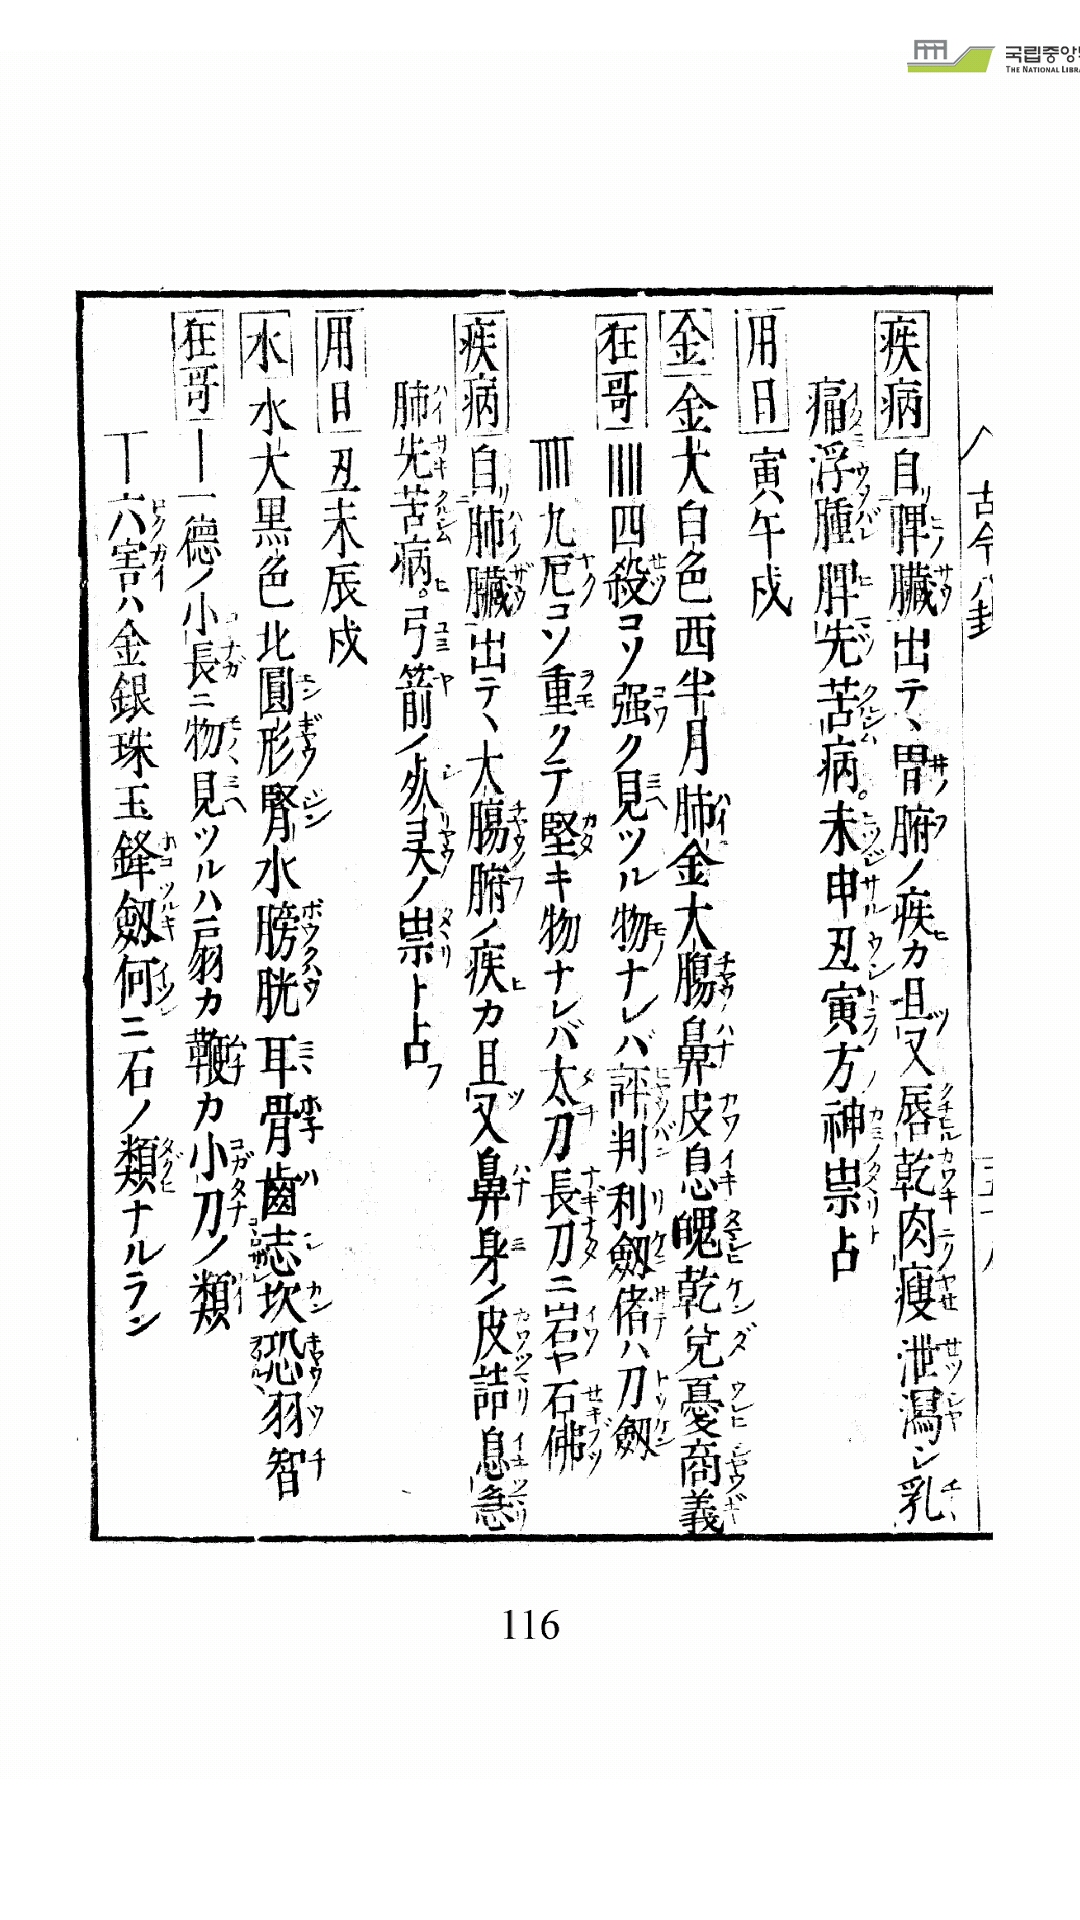 국립중앙
THE NATIONAL LIBRA
古今八卦
疾病 自脾臓出テヽ胃腑ノ疾カ且又唇乾肉痩泄瀉シ乳
痛浮腫脾先苦病。未申丑寅方神祟占
用日 寅午戌
金 金犬白色西半月肺金大腸鼻皮息魄乾兌憂商義
狂哥 四殺コソ强ク見ツル物ナレバ評判利劔偖ハ刀劔
九厄コソ重クテ堅キ物ナレバ太刀長刀ニ岩ヤ石佛
疾病 自肺臓出テヽ大腸腑ノ疾カ且又鼻身ノ皮詰息急
肺先苦病。弓箭ノ灵ノ祟ト占フ
用日 丑未辰戌
水 水犬黒色北圓形腎水膀胱耳骨齒志坎恐羽智
狂哥 一德ノ小長ニ物見ツルハ扇カ鞭カ小刀ノ類
六害ハ金銀珠玉鋒劔何ニ石ノ類ナルラン
116